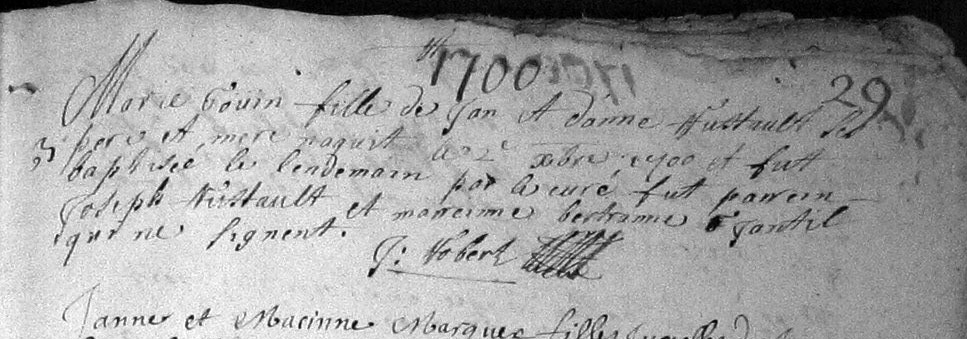 1700
29
Marie Gouin fille de Jan et danne Hustault ses
pere et mere naquit le 2e xbre 1700 et futt
baptisée le lendemain par le curé fut parrein
Joseph Hustault et marreinne bertranne Gantil
qui ne signent.
J: Hobert
Janne et Macinne Marquer filles Jumelles d